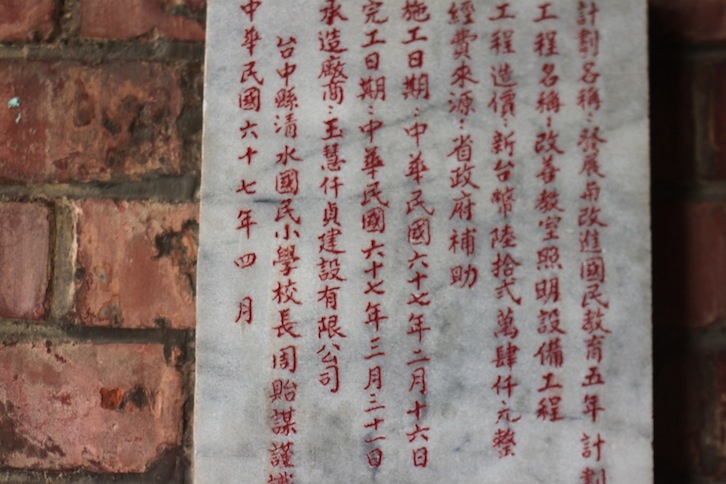 計劃名稱：發展與改進國民教育五年計劃
工程名稱：改善教室照明設備工程
工程造價：新台幣陸拾弍萬肆仟元整
經費來源：省政府補助
施工日期：中華民國六十七年二月十六日
完工日期：中華民國六十七年三月三十一日
承造廠商：玉慧仟貞建設有限公司
台中縣清水國民小學校長周貽謀謹識
中華民國六十七年四月